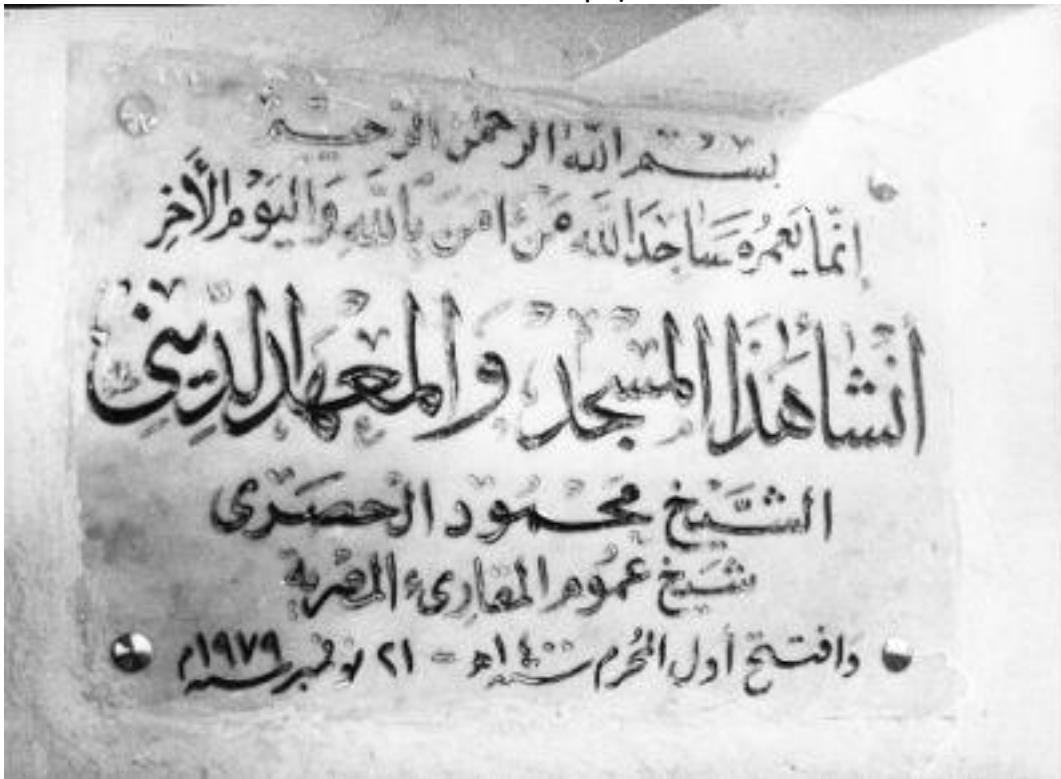 بسم الله الرحمن الرحيم
إنما يعمر مساجد الله من ءامن بالله واليوم الأخر
أنشأ هذا المسجد والمعهد الديني
الشيخ محمود الحصرى
شيخ عموم المقارىء المصرية
وافتتح أول المحرم سنة ١٤٠٠هـ - ٢١ نوفمبر سنة ١٩٧٩م